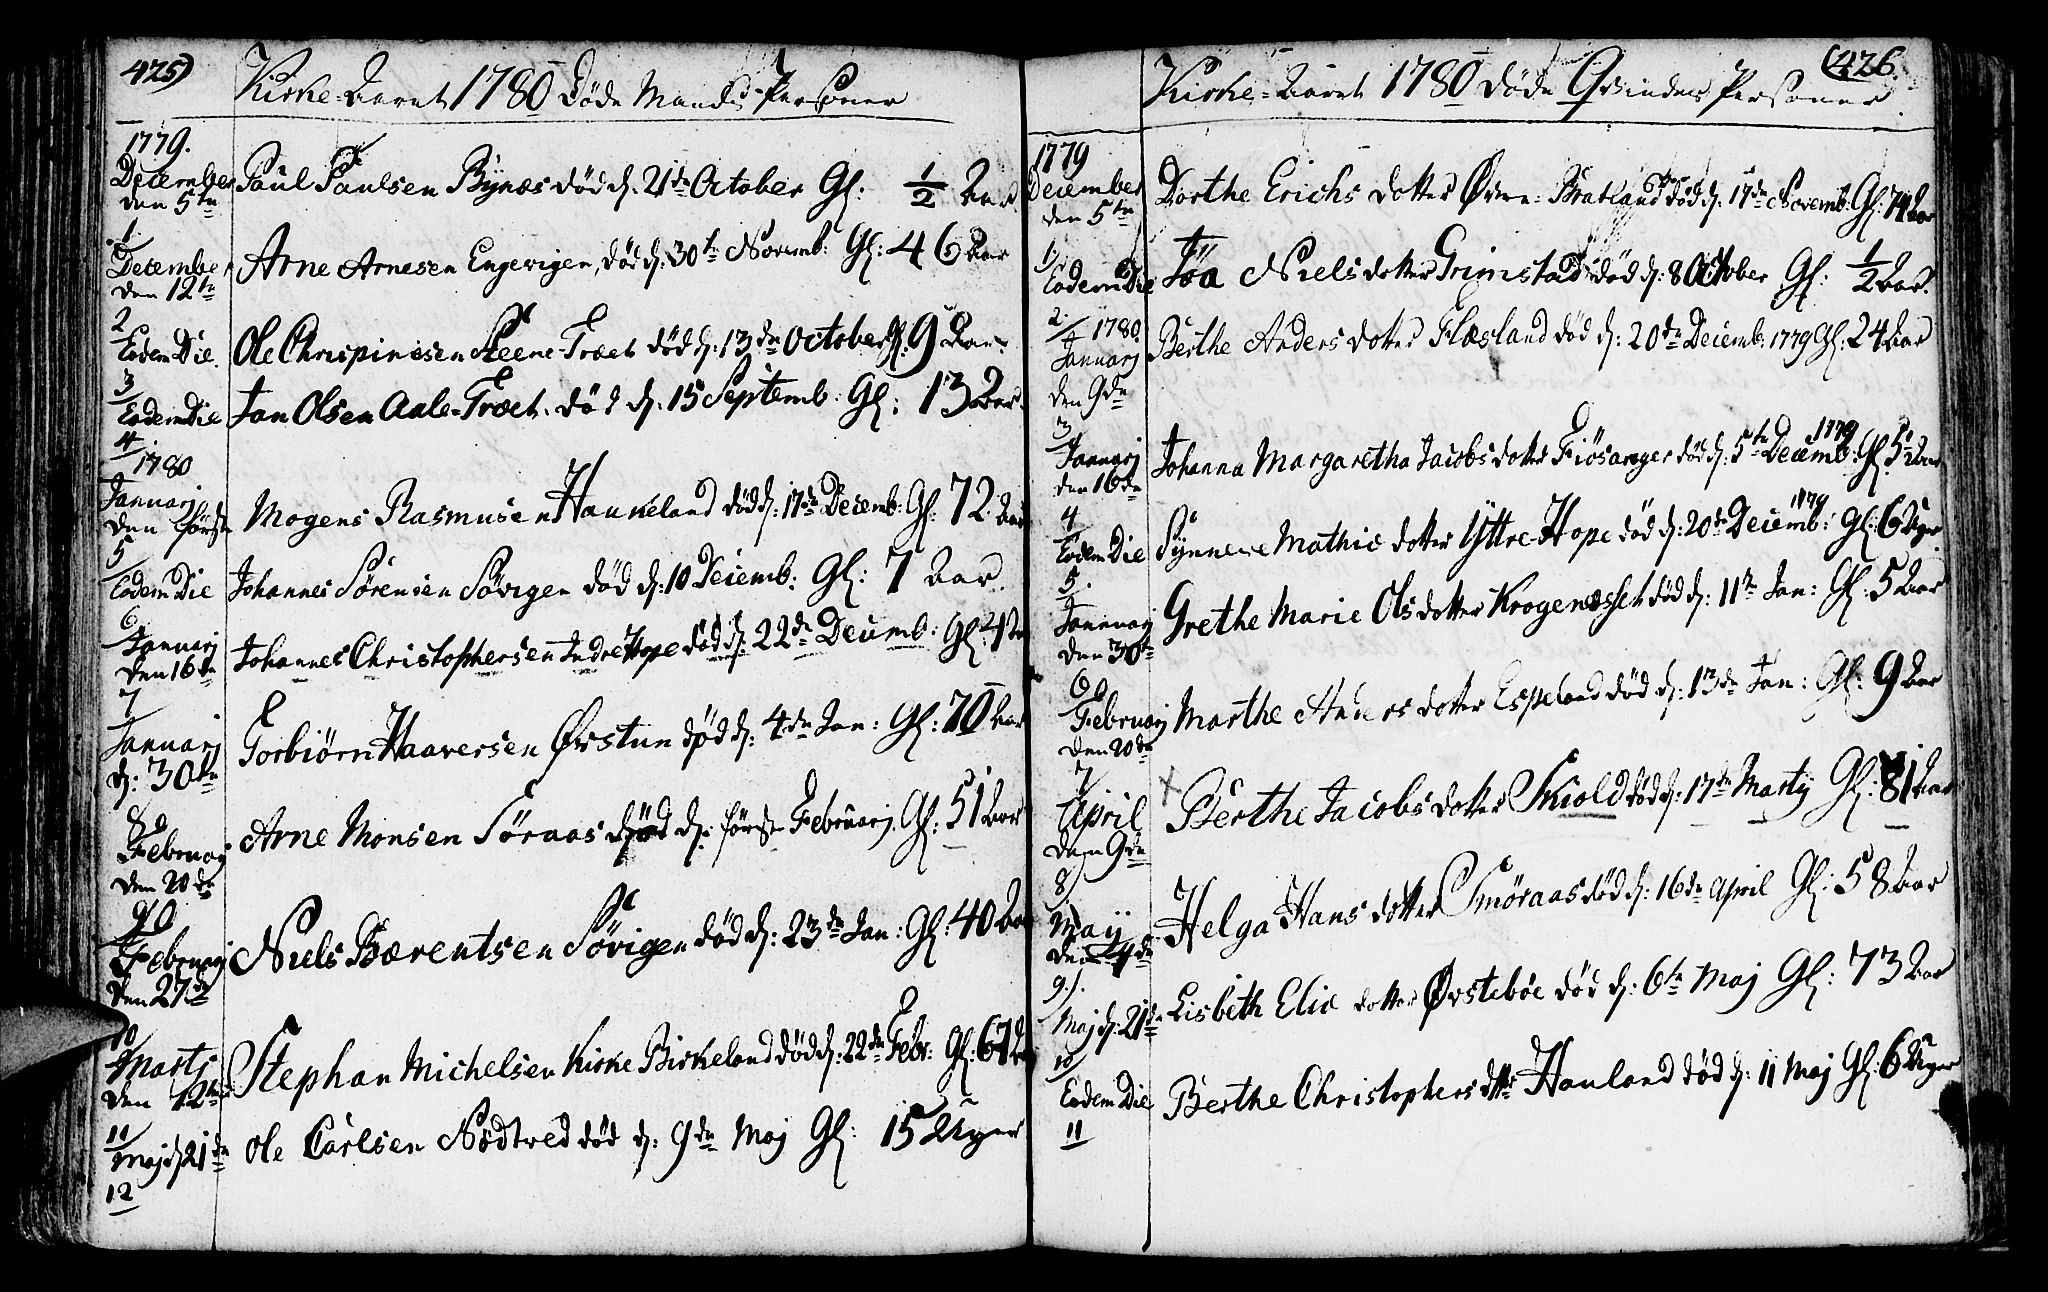 425)
Kirke-Aaret 1780 Døde Mands-Personer
1779.
December den 5te Paul Paulsen Bynæs død d: 21de October Gl: 1/2 Aar
1.
December den 12te Arne Arnesen Engevigen, død d: 30te Novemb: Gl: 46 Aar
2
Eodem Die. Ole Chrispinesen Steene-Træet død d: 13de October Gl: 9 Aar
3
Eodem Die Jan Olsen Aale-Træet. død d: 15 Septemb: Gl: 13 Aar.
4
1780
Januarj den første Mogens Rasmusen Haukeland død d: 17de Decemb: Gl: 72 Aar
5
Eodem Die Johannes Sørensen Søvigen død d: 10 Decemb: Gl: 7 Aar.
6
Januarj den 16de Johannes Christophersen Indre Hope død d: 22de Decemb: Gl:
7
Januarj d: 30te Torbiørn Haaversen Øvstun død d: 4de Jan: Gl: 70 Aar
8
Februarj den 20de Arne Monsen Søraas død d: første Februarj. Gl: 51 Aar
9
Februarj den 27de Niels Bærentsen Søvigen død d: 23de Jan: Gl: 40 Aar
10
Martj den 12te Stephan Michelsen Kirke Birkeland død d: 22de Febr: Gl: 67 Aar
11
Maj d: 21de Ole Carlsen Nødtved død d: 9de Maj Gl: 15 Uger
12
(426.
Kirke-Aaret 1780 Døde Qvindes Personer
1779
December den 5te Dorthe Erichs dotter Øvre-Bratland død d: 17de Novemb: Gl: 74 Aar
1.
Eodem Die Jøa Niels dotter Grimstad død d: 8 October Gl: 1/2 Aar.
2.
1780
Januarj den 9de Berthe Anders dotter Flæsland død d: 20de Decemb: 1779 Gl: 24 Aar
3
Januarj den 16de Johanna Margaretha Jacobs dotter Fiøsanger død d: 5te Decemb: 1779 Gl: 5 1/2 Aar
4
Eodem Die Synneve Mathie dotter Yttre-Hope død d: 20de Decemb: 1779 Gl: 6 Uger
5.
Januarj den 30te Grethe Marie Ols dotter Krogenæsset død d: 11te Jan: Gl: 5 Aar
6
Februarj den 20de Marthe Anders dotter Espeland død d: 13de Jan: Gl: 9 Aar
7
April den 9de Berthe Jacobs dotter Skiold død d: 17de Martij Gl: 81 Aar
8
May den 4de Helga Hans dotter Smøraas død d: 16de April Gl: 58 Aar
9.
Maj d: 21de Lisbeth Elie dotter Øvstebøe død d: 6te Maj Gl: 73 Aar
10
Eodem Die Berthe Christophers dttr Hauland død d: 11 Maj Gl: 6 Uger
11